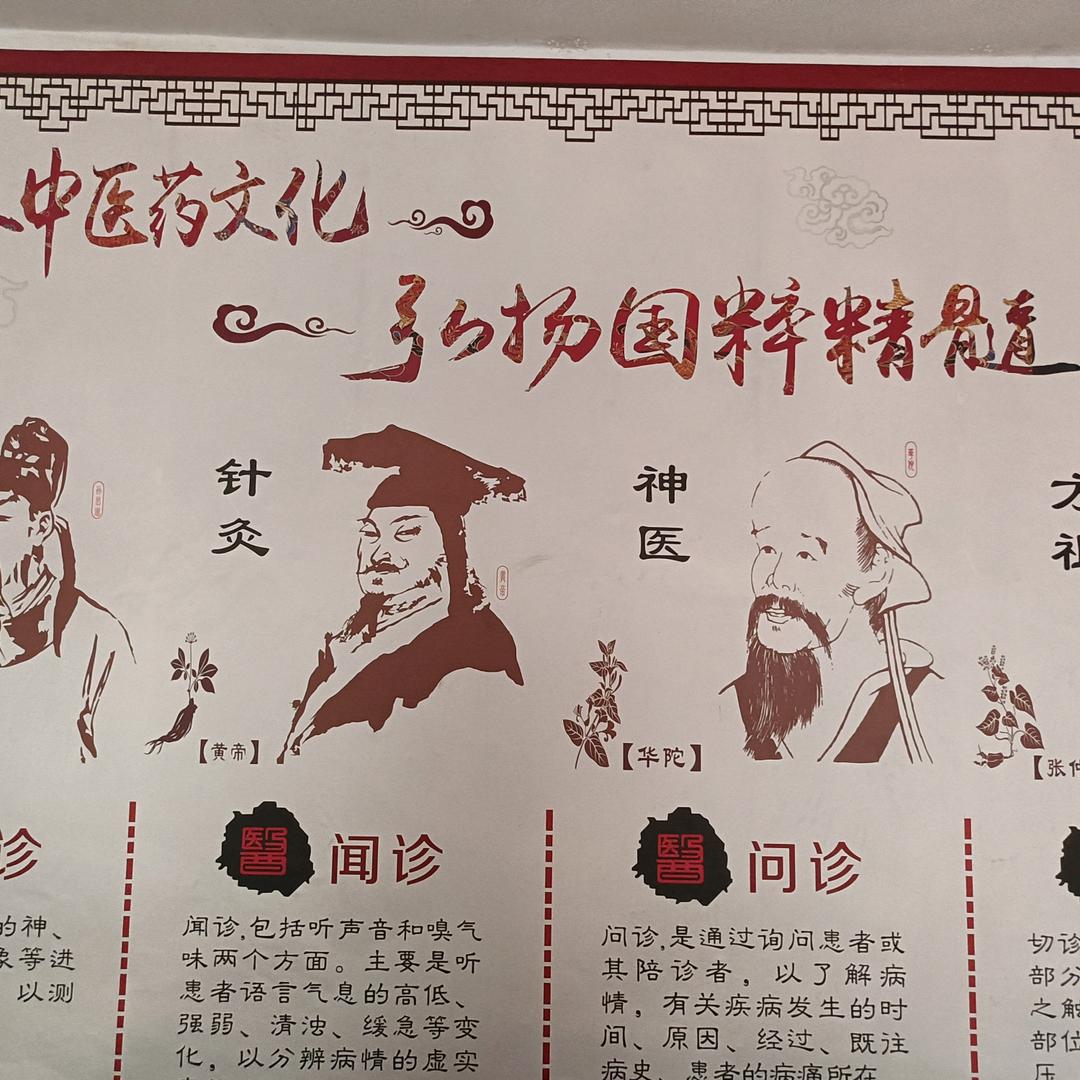 中医药文化
弘扬国粹精髓
针灸
神医
方祖
黄帝
华陀
【黄帝】
【华陀】
【张仲
诊
闻诊
问诊
醫
醫
的神、
象等进
以测
闻诊,包括听声音和嗅气
味两个方面。主要是听
患者语言气息的高低、
强弱、清浊、缓急等变
化，以分辨病情的虚实
问诊,是通过询问患者或
其陪诊者，以了解病
情，有关疾病发生的时
间、原因、经过、既往
病史、患者的病痛所在
切诊
部分
之触
部位
压